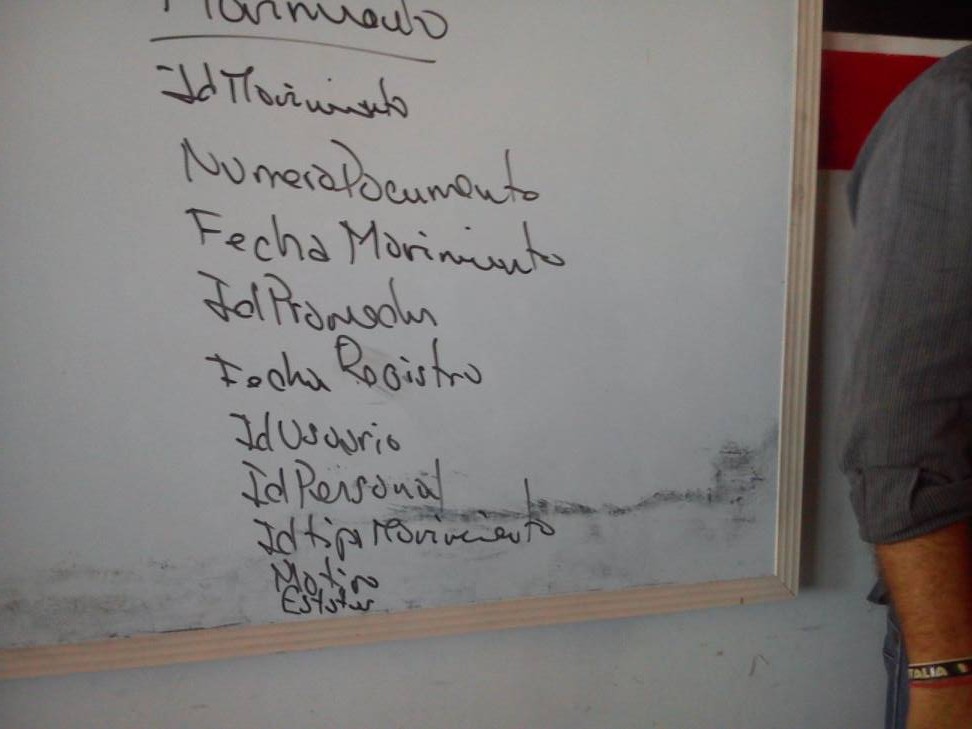 Movimiento
IdMovimiento
NumeroDocumento
Fecha Movimiento
IdProveedor
Fecha Registro
IdUsuario
IdPersonal
IdtipoMovimiento
Motivo
Estatus
ITALIA